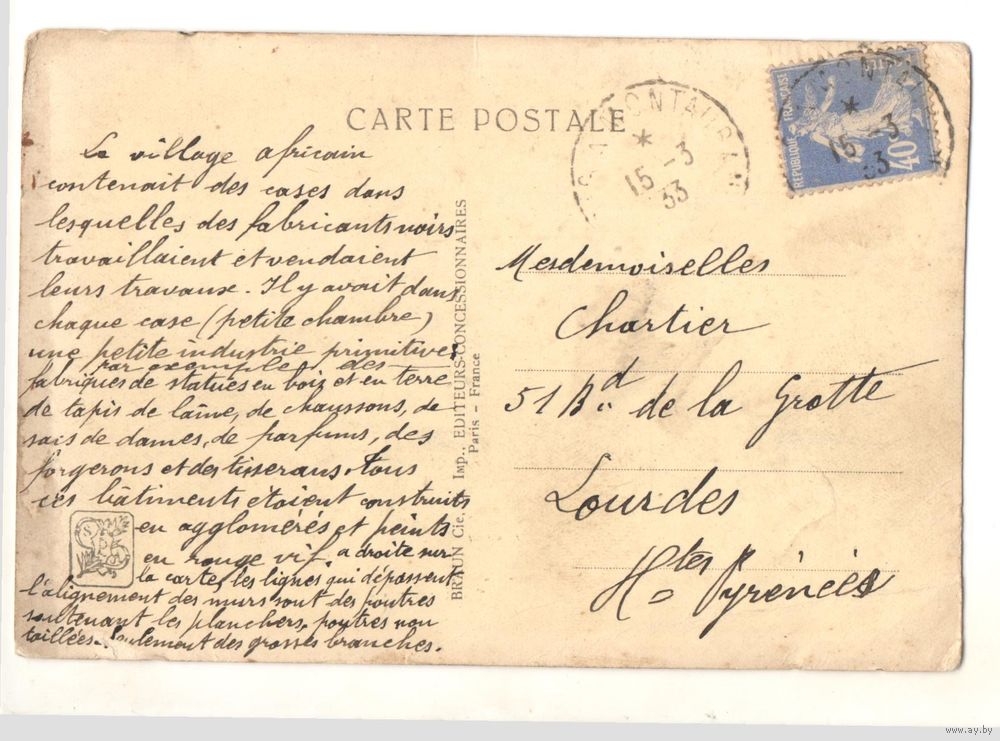 CARTE POSTALE
Le village africain
contenait des cases dans
lesquelles des fabricants noirs
travaillaient et vendaient
leurs travaux. Il y avait dans
chaque case (petite chambre)
une petite industrie primitive
par exemple, des
fabriques de statues en bois et en terre
de tapis de laine, de chaussons, de
sacs de dames, de parfums, des
forgerons et des tisserans. Tous
ces bâtiments étaient construits
en agglomérés et peints
en rouge vif. a droite sur
la carte, les lignes qui dépassent
l'alignement des murs sont des poutres
soutenant les planchers, poutres non
taillées. Seulement des grosses branches.
BRAUN Cie, Imp., EDITEURS-CONCESSIONNAIRES
Paris - France
MONTAUBAN
15 - 3
33
REPUBLIQUE FRANÇAISE
40
MONTAU
15 - 3
33
Mesdemoiselles
Chartier
51 Bd de la Grotte
Lourdes
Htes Pyrénées
www.ay.by